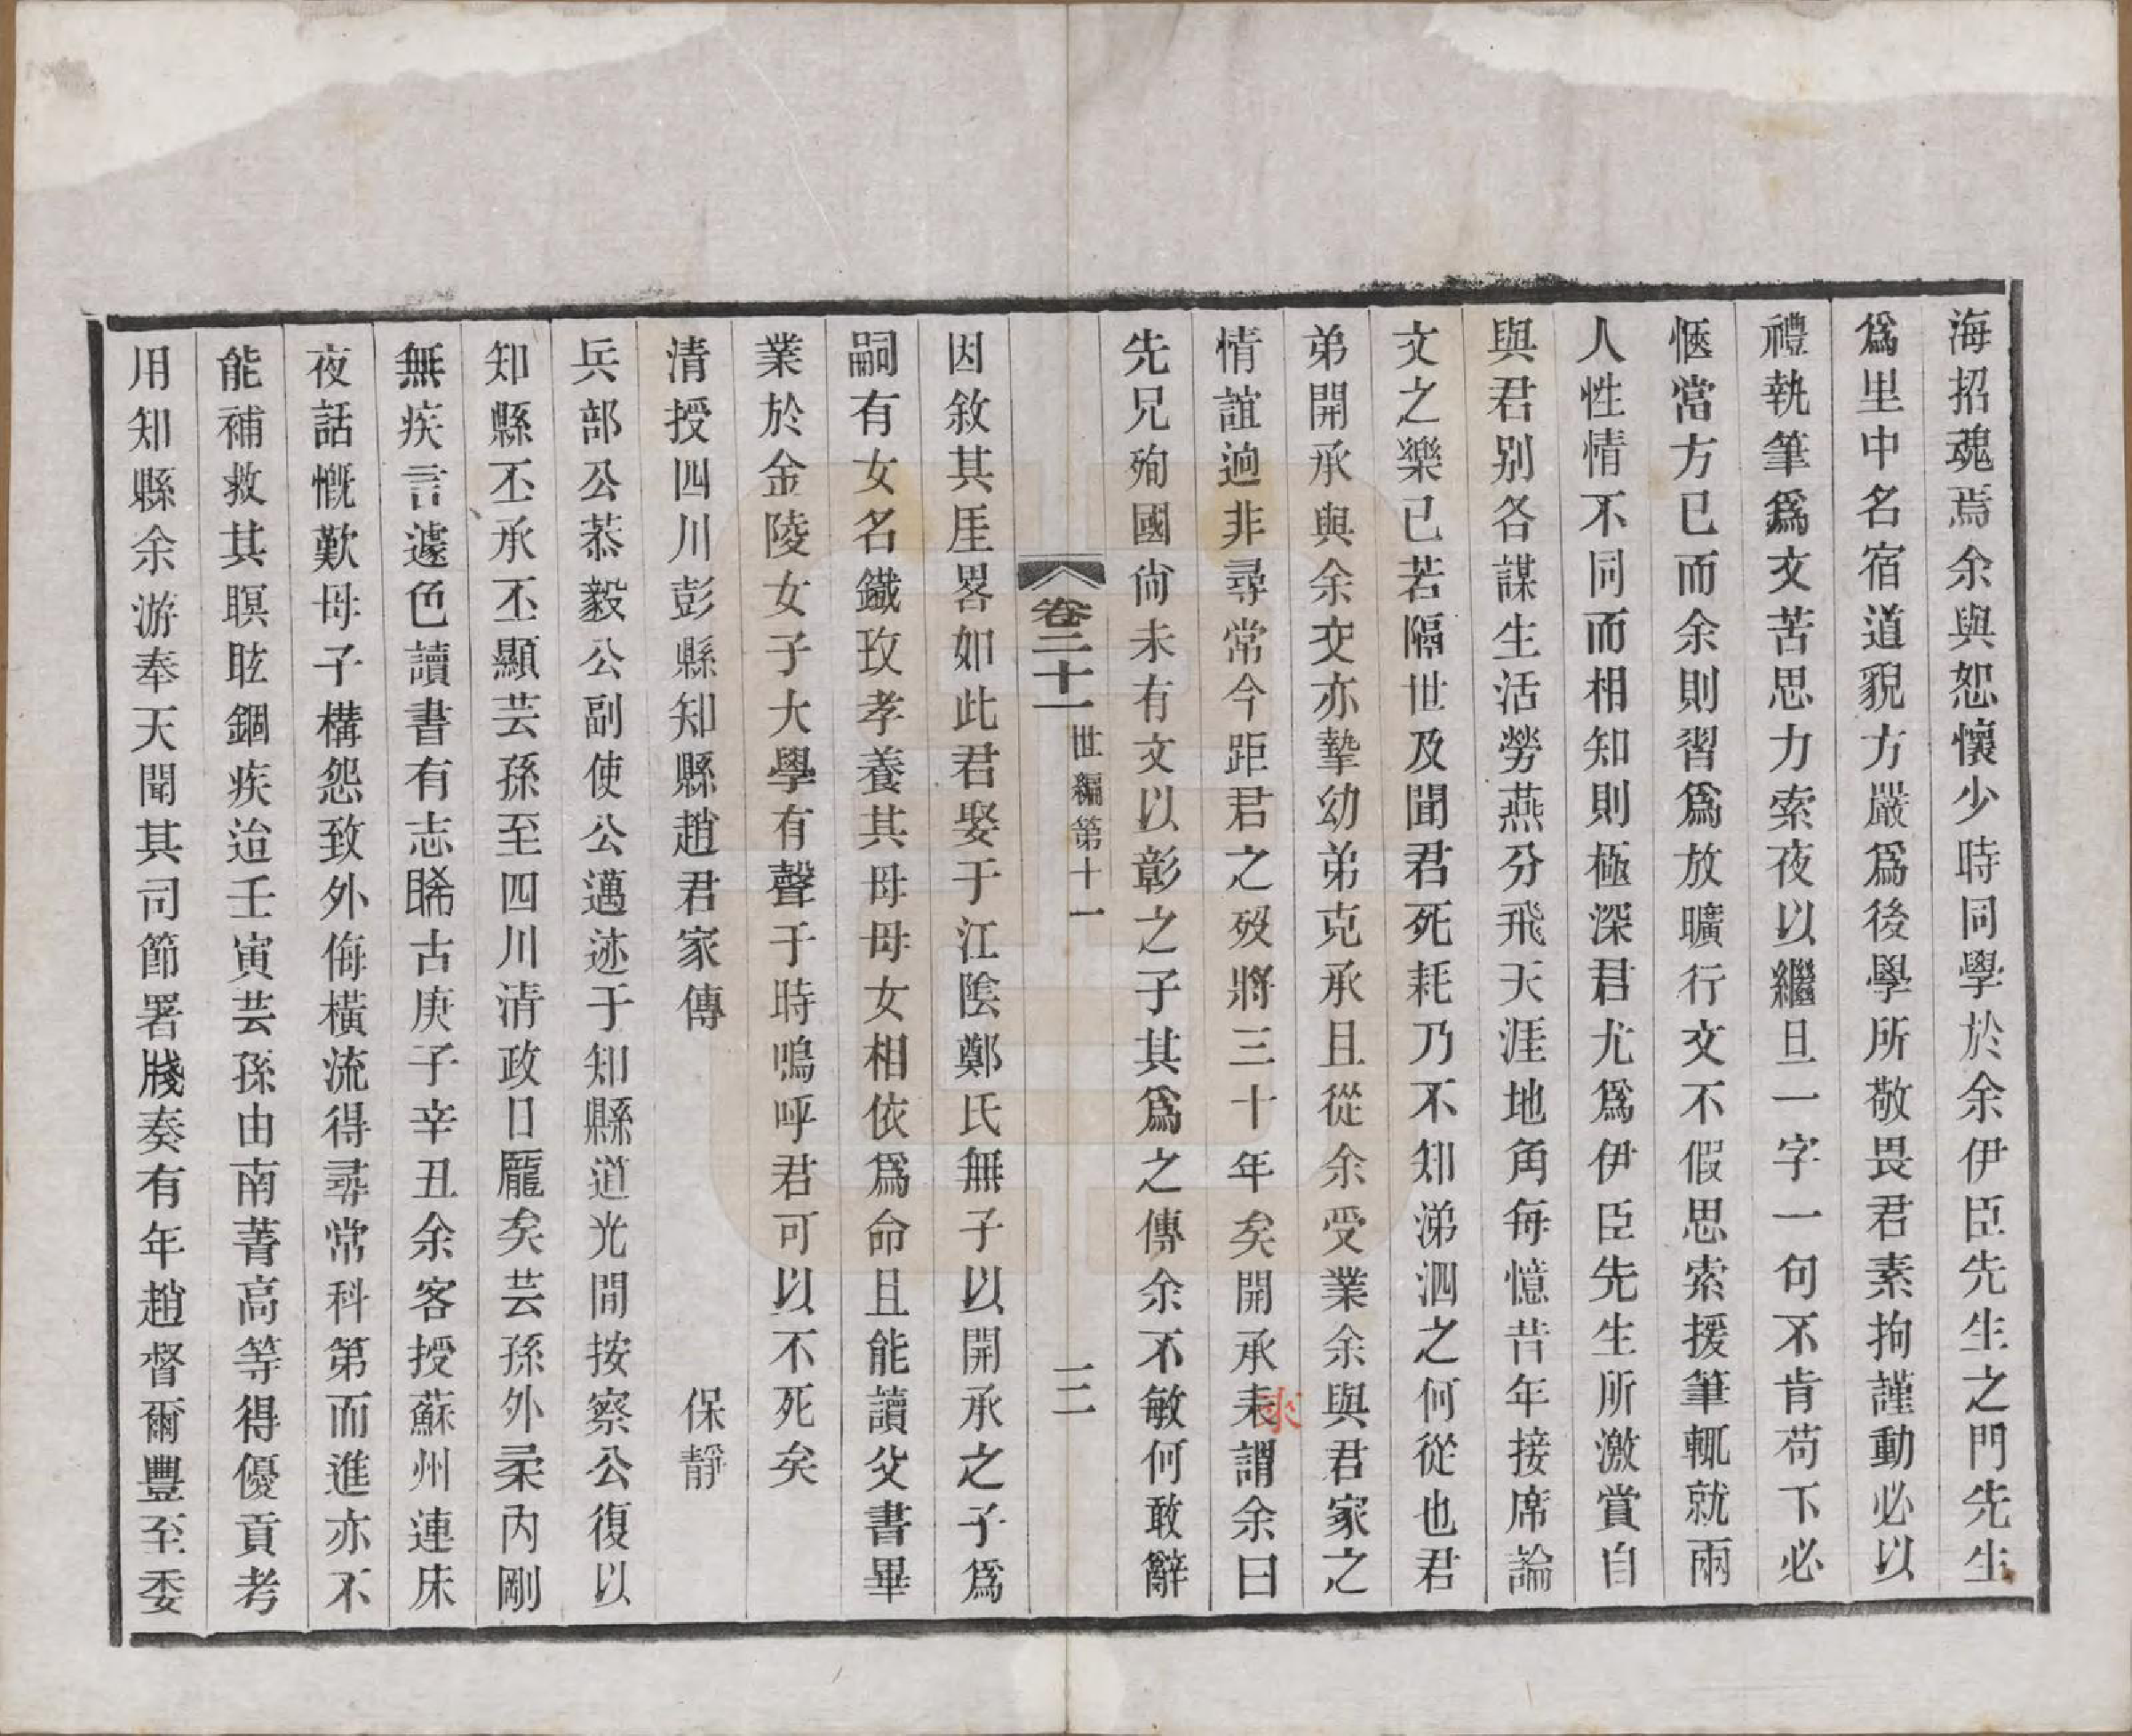 海招魂焉余與恕懷少時同學於余伊臣先生之門先生
爲里中名宿道貌方嚴爲後學所敬畏君素拘謹動必以
禮執筆爲文苦思力索夜以繼旦一字一句不肯苟下必
愜當方已而余則習爲放曠行文不假思索援筆輒就兩
人性情不同而相知則極深君尤爲伊臣先生所激賞自
與君別各謀生活勞燕分飛天涯地角每憶昔年接席論
文之樂已若隔世及聞君死耗乃不知涕泗之何從也君
弟開承與余交亦摯幼弟克承且從余受業余與君家之
情誼逈非尋常今距君之歿將三十年矣開承耒謂余曰
來
先兄殉國尙未有文以彰之子其爲之傳余不敏何敢辭
卷二十一 世編第十一 三
因敘其厓畧如此君娶于江陰鄭氏無子以開承之子爲
嗣有女名鐵玫孝養其母母女相依爲命且能讀父書畢
業於金陵女子大學有聲于時嗚呼君可以不死矣
清授四川彭縣知縣趙君家傳 保靜
兵部公恭毅公副使公邁迹于知縣道光間按察公復以
知縣丕承丕顯芸孫至四川清政日龎矣芸孫外柔內剛
無疾言遽色讀書有志睎古庚子辛丑余客授蘇州連床
夜話慨歎母子構怨致外侮橫流得尋常科第而進亦不
能補救其瞑眩錮疾迨壬寅芸孫由南菁高等得優貢考
用知縣余游奉天聞其司節署牋奏有年趙督爾豐至委